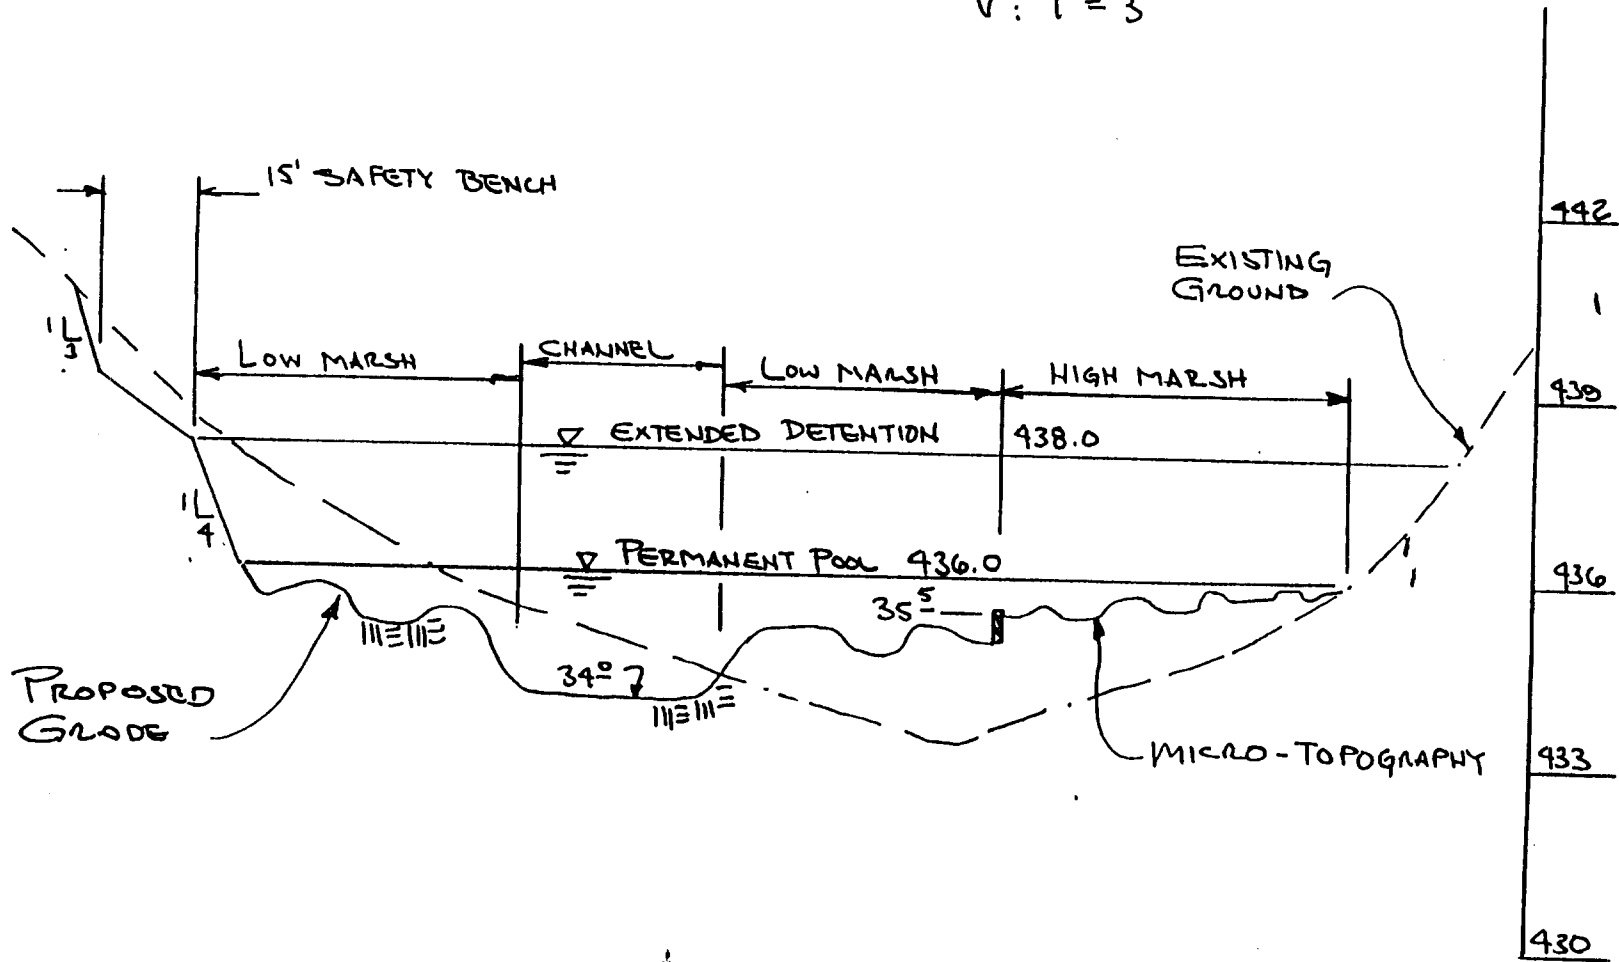 V: 1" = 3'
15' SAFETY BENCH
442
EXISTING
GROUND
1
3
LOW MARSH
CHANNEL
LOW MARSH
HIGH MARSH
439
EXTENDED DETENTION 438.0
1
4
PERMANENT POOL 436.0
436
35 5
34 0
PROPOSED
GRADE
MICRO-TOPOGRAPHY
433
430